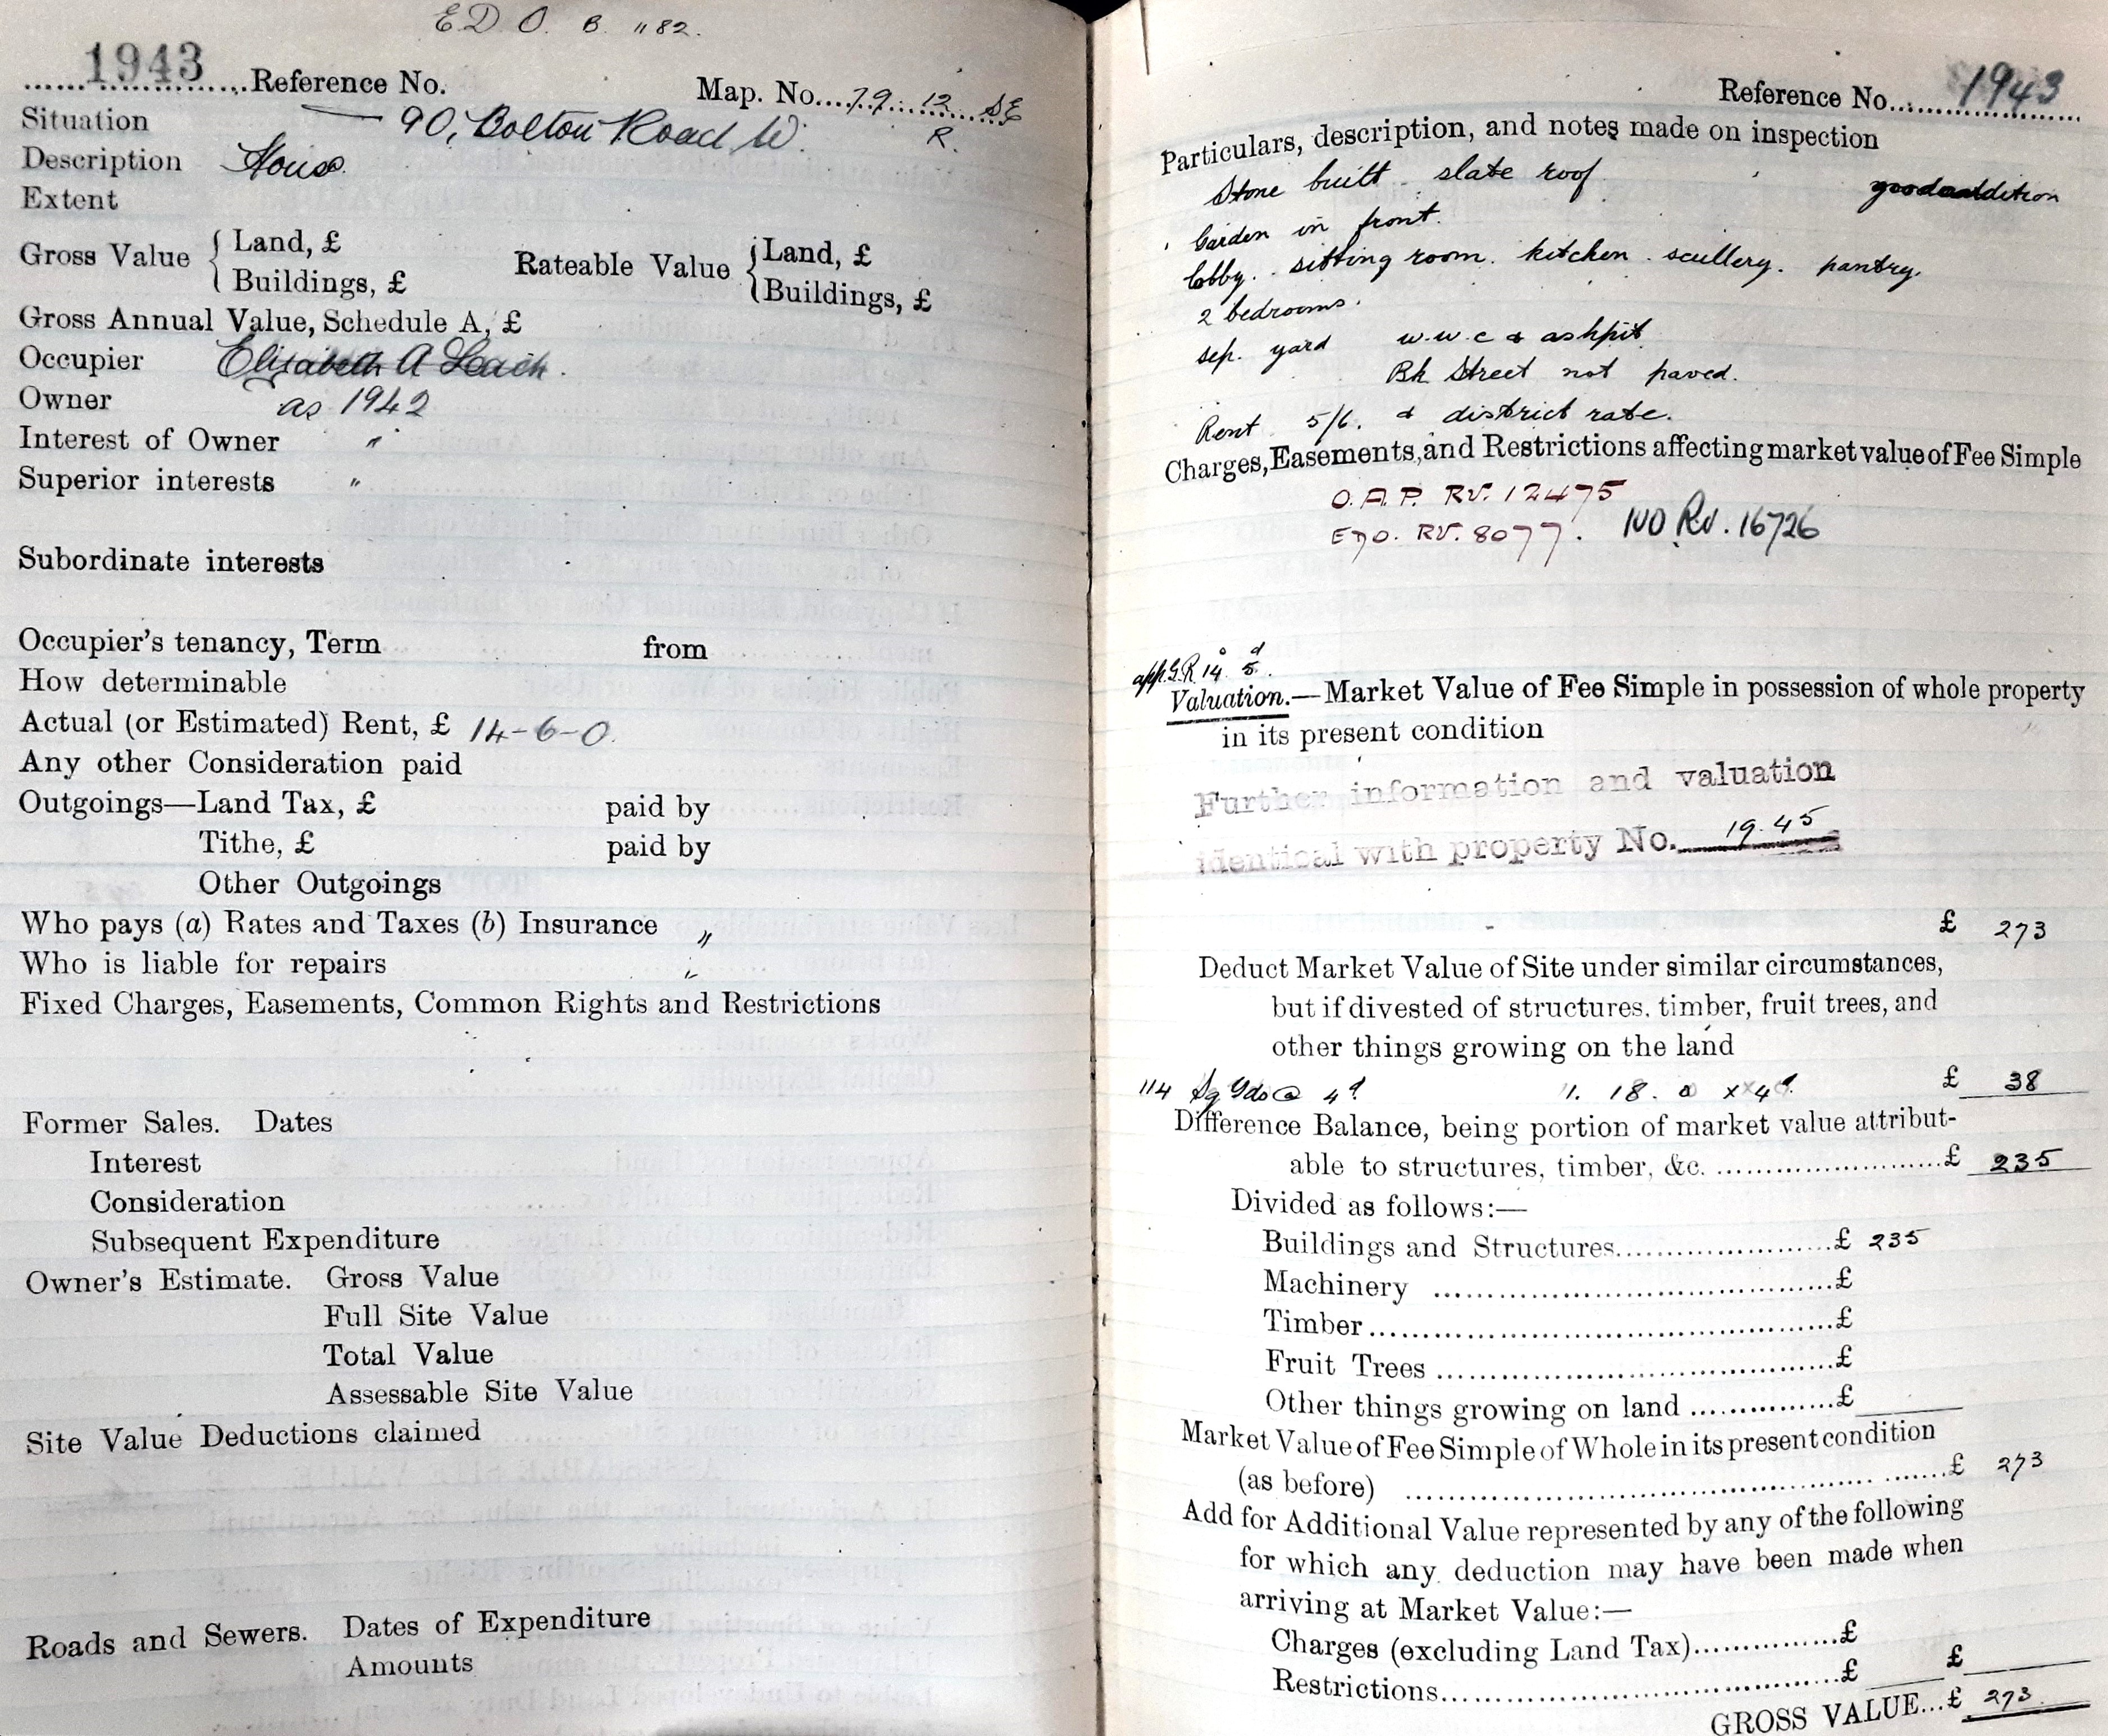 EDO. B. 1182.
1943 Reference No. Map. No. 79. 12 SE
Situation 90, Bolton Road W. R.
Description House
Extent
Gross Value { Land, £ Rateable Value { Land, £
Buildings, £ Buildings, £
Gross Annual Value, Schedule A, £
Occupier Elizabeth A Leach
Owner as 1942
Interest of Owner "
Superior interests "
Subordinate interests
Occupier's tenancy, Term from
How determinable
Actual (or Estimated) Rent, £ 14-6-0
Any other Consideration paid
Outgoings—Land Tax, £ paid by
Tithe, £ paid by
Other Outgoings
Who pays (a) Rates and Taxes (b) Insurance "
Who is liable for repairs "
Fixed Charges, Easements, Common Rights and Restrictions
Former Sales. Dates
Interest
Consideration
Subsequent Expenditure
Owner's Estimate. Gross Value
Full Site Value
Total Value
Assessable Site Value
Site Value Deductions claimed
Roads and Sewers. Dates of Expenditure
Amounts
Reference No. 1943
Particulars, description, and notes made on inspection
Stone built slate roof
Garden in front.
lobby. sitting room. kitchen. scullery. pantry.
2 bedrooms.
sep. yard w.w.c & ashpit
Bk Street not paved.
Rent 5/6. & district rate.
Charges, Easements, and Restrictions affecting market value of Fee Simple
O.A.P. RV. 12475
EDO. RV. 8077. RV. 16726
app. G.R. 14s 5d.
Valuation.—Market Value of Fee Simple in possession of whole property
in its present condition
Further information and valuation
identical with property No. 1945
£ 273
Deduct Market Value of Site under similar circumstances,
but if divested of structures, timber, fruit trees, and
other things growing on the land
114 Sq Yds @ 4d 1. 18. 0 £ 38
Difference Balance, being portion of market value attribut-
able to structures, timber, &c. £ 235
Divided as follows:—
Buildings and Structures £ 235
Machinery £
Timber £
Fruit Trees £
Other things growing on land £
Market Value of Fee Simple of Whole in its present condition
(as before) £ 273
Add for Additional Value represented by any of the following
for which any deduction may have been made when
arriving at Market Value:—
Charges (excluding Land Tax) £
Restrictions £ £
GROSS VALUE...£ 273